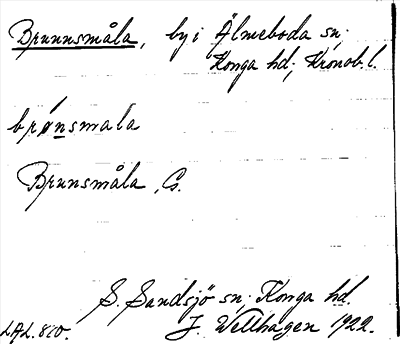 Brunnsmåla, by i Älmeboda sn;
Konga hd; Kronob. l.
brønsmala
Brunsmåla, G.
S. Sandsjö sn; Konga hd.
LAL. 810. J. Wellhagen 1922.